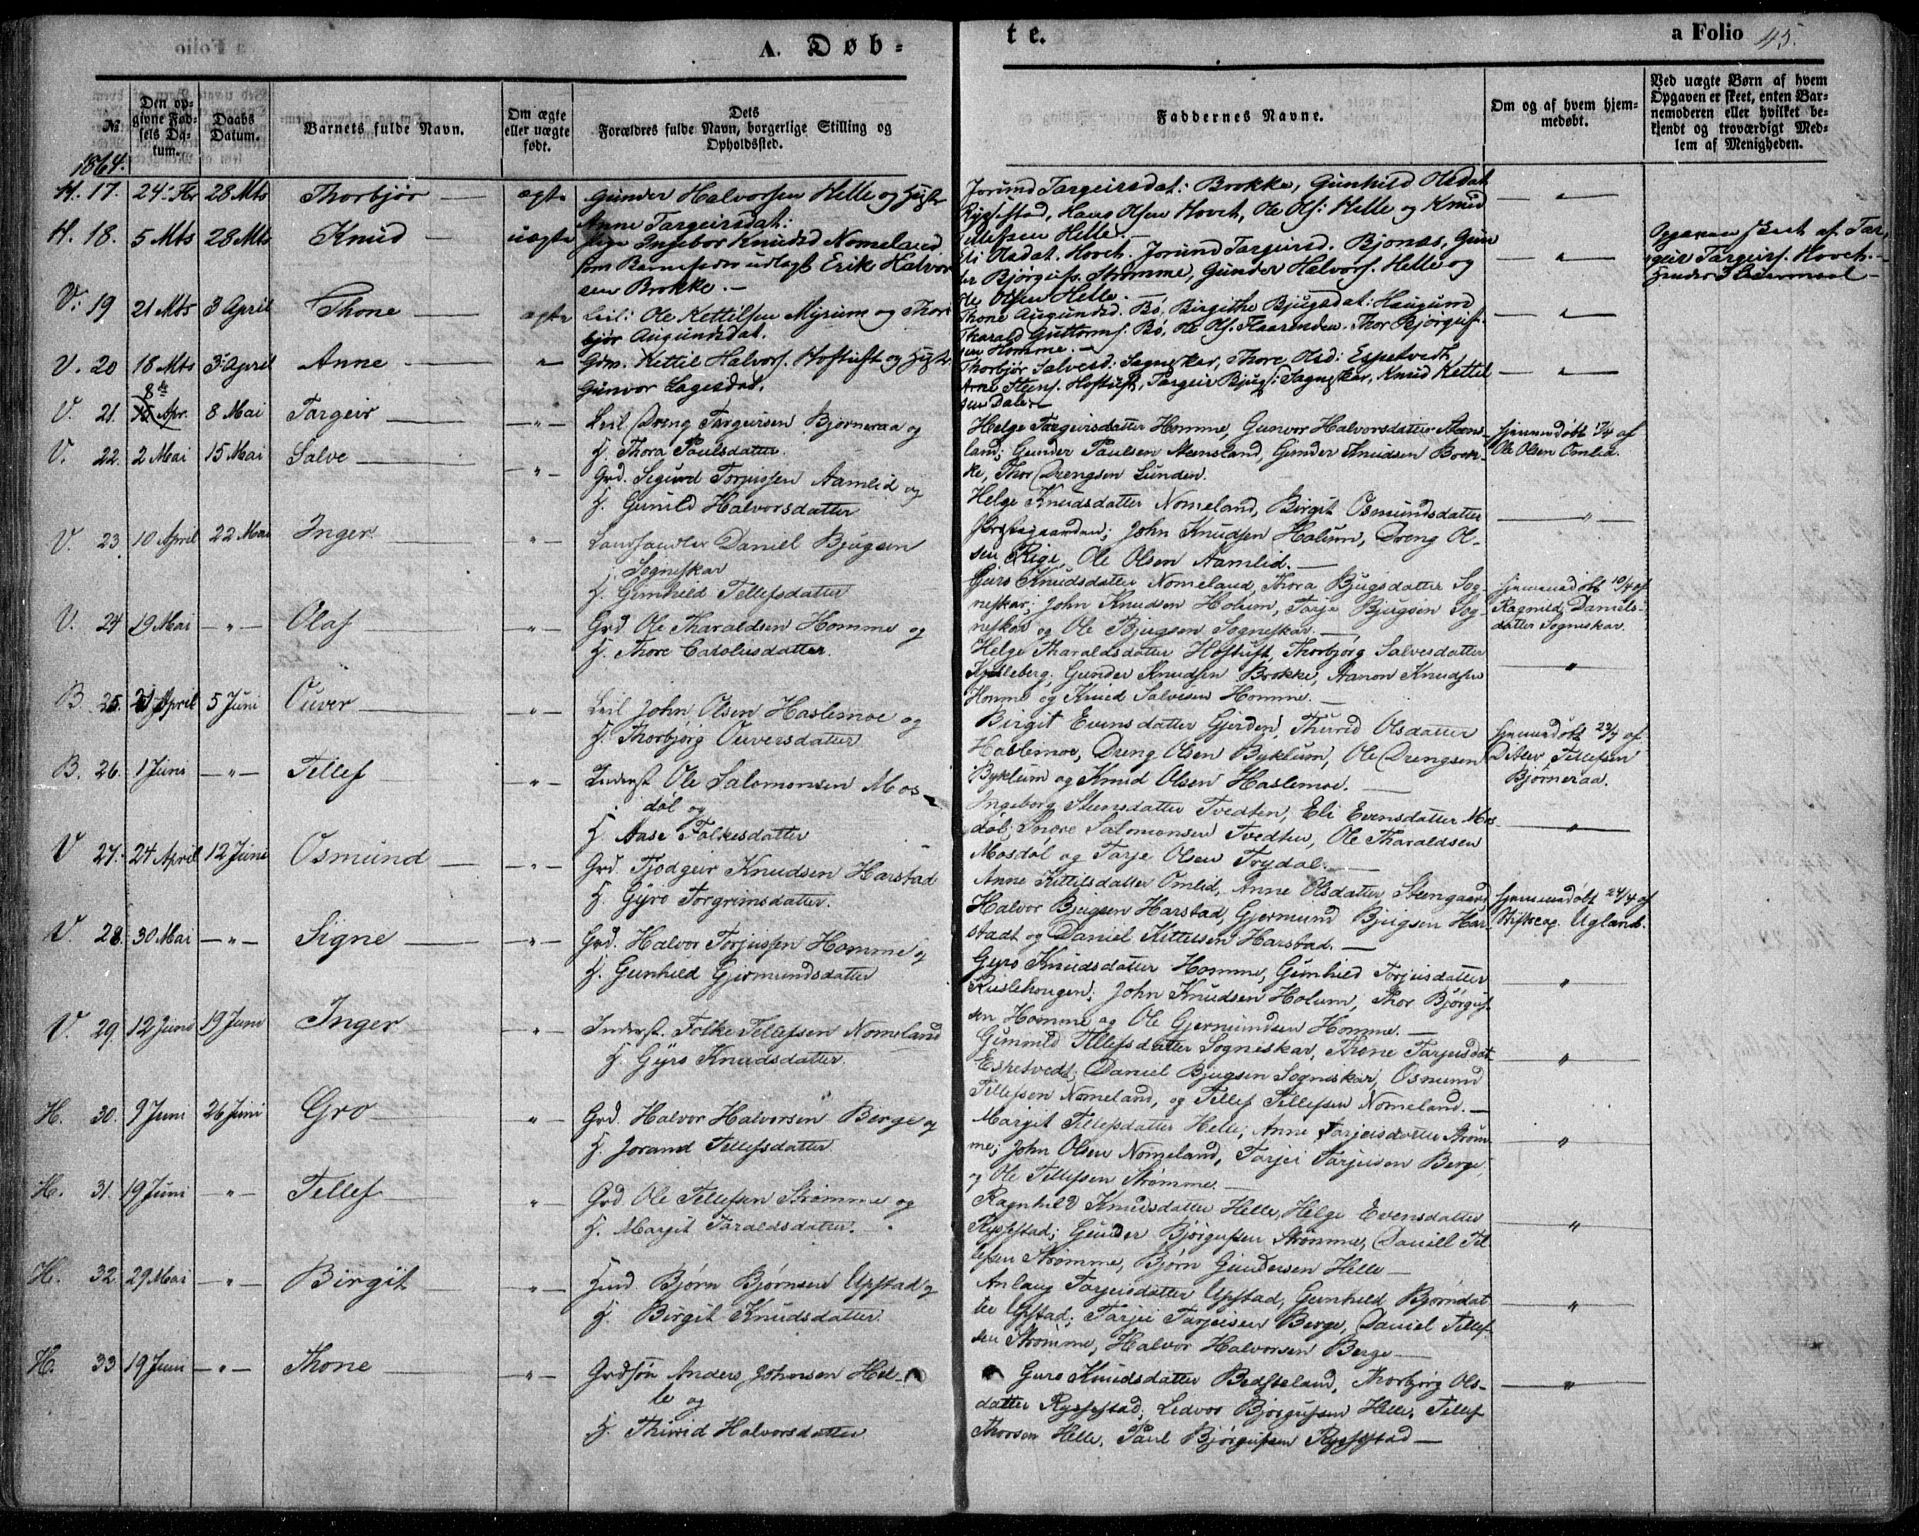 A. Døb-
te.
a Folio 45.
№
Den op-
givne Fød-
sels Da-
tum.
Daabs
Datum.
Barnets fulde Navn.
Om ægte
eller uægte
født.
Dets
Forældres fulde Navn, borgerlige Stilling og
Opholdssted.
Faddernes Navne.
Om og af hvem hjem-
medøbt.
Ved uægte Børn af hvem
Opgaven er skeet, enten Bar-
nemoderen eller hvilket be-
kjendt og troværdigt Med-
lem af Menigheden.
1864.
H. 17. 24 Fbr 28 Mts Thorbjør ægte
Gunder Halvorsen Helle og
Anne Targeirsdat:
Jorund Targeirsdat: Brokke, Gunhild Olsdat
Rysstad, Hans Olsen Hovet, Ole Ols: Helle og Knud
Tellefsen Helle.
H. 18. 5 Mts 28 Mts Knud uægte
Pige Ingebor Knudsd Nomeland
som Barnefader udlagt Erik Halvor
sen Brokke.
Eli Olsdat. Hovet, Jorund Targeirsd. Bjonæs, Gun
der Bjørgufs. Strømme, Gunder Halvors. Helle og
Ole Olsen Helle.
Opgaven skeet af Tar
geir Targeirs. Hovet.
V. 19 21 Mts 3 April Thone ægte
Leil: Ole Kettilsen Myrum og Thor
bjør Augundsdat.
Thone Augundsd. Bø, Birgithe Bjugsdat: Haugum
Tharald Guttorms. Bø, Ole Ols. Flaarenden, Thor Bjørguf
sen Homme.
V. 20 18 Mts 3 April Anne
Gdm. Kettil Halvors. Hoftuft og
Gunvor Aagesdat.
Thorbjør Salvesd: Sogneskar, Thore Olsd: Espetvedt
Arne Steens. Hoftuft, Targeir Bjugs: Sogneskar, Knud Kettil
sen Dale
V. 21. 8 Apr. 8 Mai Targeir
Leil. Dreng Targeirsen Bjørneraa og
H. Thora Paulsdatter.
Helge Targeirsdatter Homme, Gunvor Halvorsdatter Aams
land; Gunder Paulsen Aamsland, Gunder Knudsen Brok
ke, Thor Drengsen Lunden.
hjemmedøbt af
Ole Olsen Omlid.
V. 22. 2 Mai 15 Mai Salve
Grd. Sigurd Torjussen Aamlid og
H. Gunild Halvorsdatter
Helge Knudsdatter Nomeland, Birgit Osmundsdatter
Præstegaarden; John Knudsen Holum, Dreng Ol-
sen Rige, Ole Olsen Aamlid.
V. 23. 10 April 22 Mai Inger
Landhandler Daniel Bjugsen
Sogneskar
H. Gunhild Tellefsdatter
Guro Knudsdatter Nomeland, Thora Bjugsdatter Sog
neskar; John Knudsen Holum, Tarje Bjugsen Sog
neskar og Ole Bjugsen Sogneskar.
hjemmedøbt 10/4 af
Ragnild Daniels-
datter Sogneskar.
V. 24 19 Mai Olaf
Grd Ole Tharaldsen Homme og
H. Thore Carolusdatter.
Helge Tharaldsdatter Hoftuft, Thorbjørg Salvesdatter
Kjetleberg; Gunder Knudsen Brokke, Aanon Knudsen
Homme og Knud Salvesen Homme.
B. 25. 21 April 5 Juni Ouver
Leil John Olsen Haslemoe og
H. Thorbjørg Ouversdatter
Birgit Evensdatter Gjerden, Thurid Olsdatter
Haslemoe, Dreng Olsen Byklum, Ole Drengsen
Byklum og Knud Olsen Haslemoe.
hjemmedøbt 23/4 af
Ditlev Tellefsen
Bjørneraa.
B. 26. 1 Juni Tellef
Inderst Ole Salomonsen Mos
døl og
H. Aase Folkesdatter
Ingeborg Steensdatter Tvedten, Eli Evensdatter Mos
døl; Snore Salomonsen Tvedten, Ole Tharaldsen
Mosdøl og Tarje Olsen Trydal.
V 27. 24 April 12 Juni Osmund
Grd. Tjodgeir Knudsen Harstad
H. Gyro Torgrimsdatter.
Anne Kittilsdatter Omlid, Anne Olsdatter Steengaard
Halvor Bjugsen Harstad, Gjermund Bjugsen Har
stadt og Daniel Kittelsen Harstad.
hjemmedøbt 24/4 af
Ugland.
V 28. 30 Mai Signe
Grd. Halvor Torjussen Homme og
H. Gunhild Gjermundsdatter
Gyro Knudsdatter Homme, Gunhild Torjusdatter
Rislehougen; John Knudsen Holum, Thor Bjørguf
sen Homme og Ole Gjermundsen Homme.
V. 29. 12 Juni 19 Juni Inger
Inderst. Folke Tellefsen Nomeland
H. Gyro Knudsdatter.
Gunnild Tellefsdatter Sogneskar, Thone Tarjeisdat
Espetvedt; Daniel Bjugsen Sogneskar, Osmund
Tellefsen Nomeland, og Tellef Tellefsen Nomeland.
H. 30. 9 Juni 26 Juni Gro
Grd. Halvor Halvorsen Berge og
H. Jorand Tellefsdatter.
Margit Tellefsdatter Helle, Anne Tarjeisdatter Strøm
me; John Olsen Nomeland, Tarjei Tarjeisen Berge,
og Ole Tellefsen Strømme.
H. 31. 19 Juni Tellef
Grd Ole Tellefsen Strømme og
H. Margit Taraldsdatter.
Ragnhild Knudsdatter Helle, Helge Evensdatter
Rysstad; Gunder Bjørgufsen Strømme, Daniel Tel
lefsen Strømme, Bjørn Gundersen Helle
H. 32. 29 Mai Birgit
Hmd Bjørn Bjørnsen Upstad og
H. Birgit Knudsdatter
Anlaug Tarjeisdatter Upstad, Gunhild Bjørndat
ter Upstad; Tarjei Tarjeisen Berge, Daniel Tellef
sen Strømme, Halvor Halvorsen Berge
H. 33 19 Juni Thone
Grdsøn Anders Johnsen Hel-
le og
H. Thurid Halvorsdatter
Guro Knudsdatter Besteland, Thorbjørg Ols-
datter Rysstad; Ledvor Bjørgufsen Helle, Tellef
Thorsen Helle, Paul Bjørgufsen Rysstad